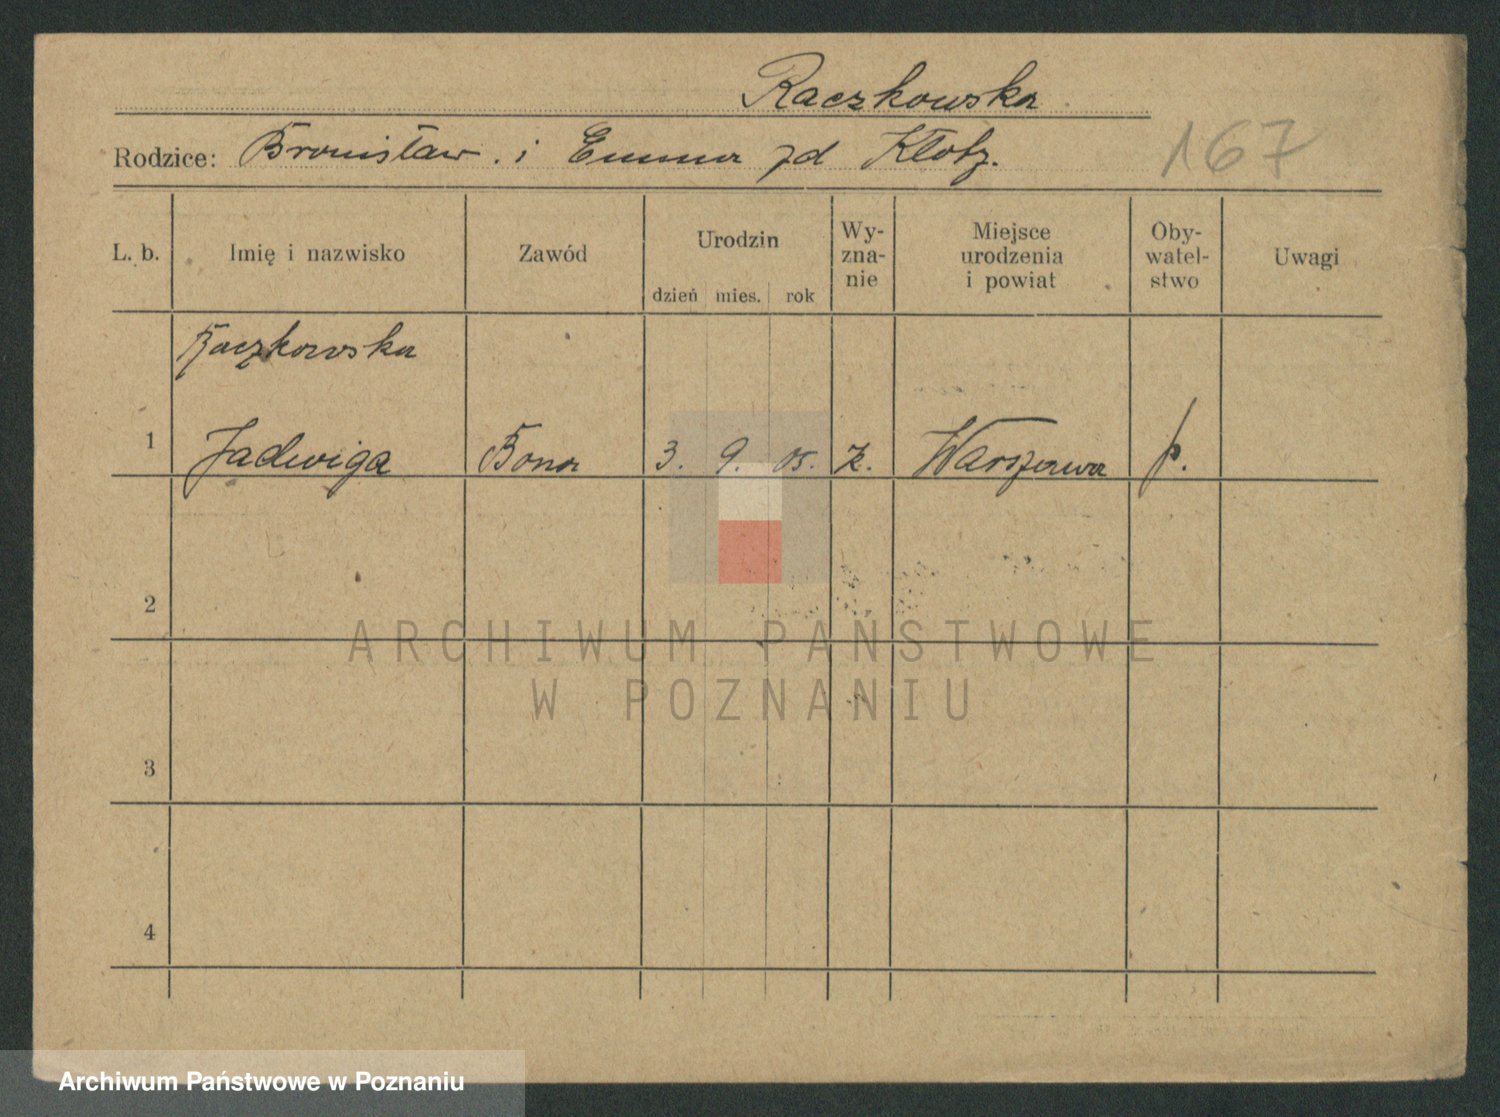 Raczkowska
Rodzice: Bronisław. i Emma zd Kłotz.
167
L. b. Imię i nazwisko Zawód Urodzin Wy- Miejsce Oby- Uwagi
zna- urodzenia watel-
nie i powiat stwo
dzień mies. rok
Raczkowska
1 Jadwiga Bona 3. 9. 05. k. Warszawa p.
2
ARCHIWUM PAŃSTWOWE
W POZNANIU
3
4
Archiwum Państwowe w Poznaniu